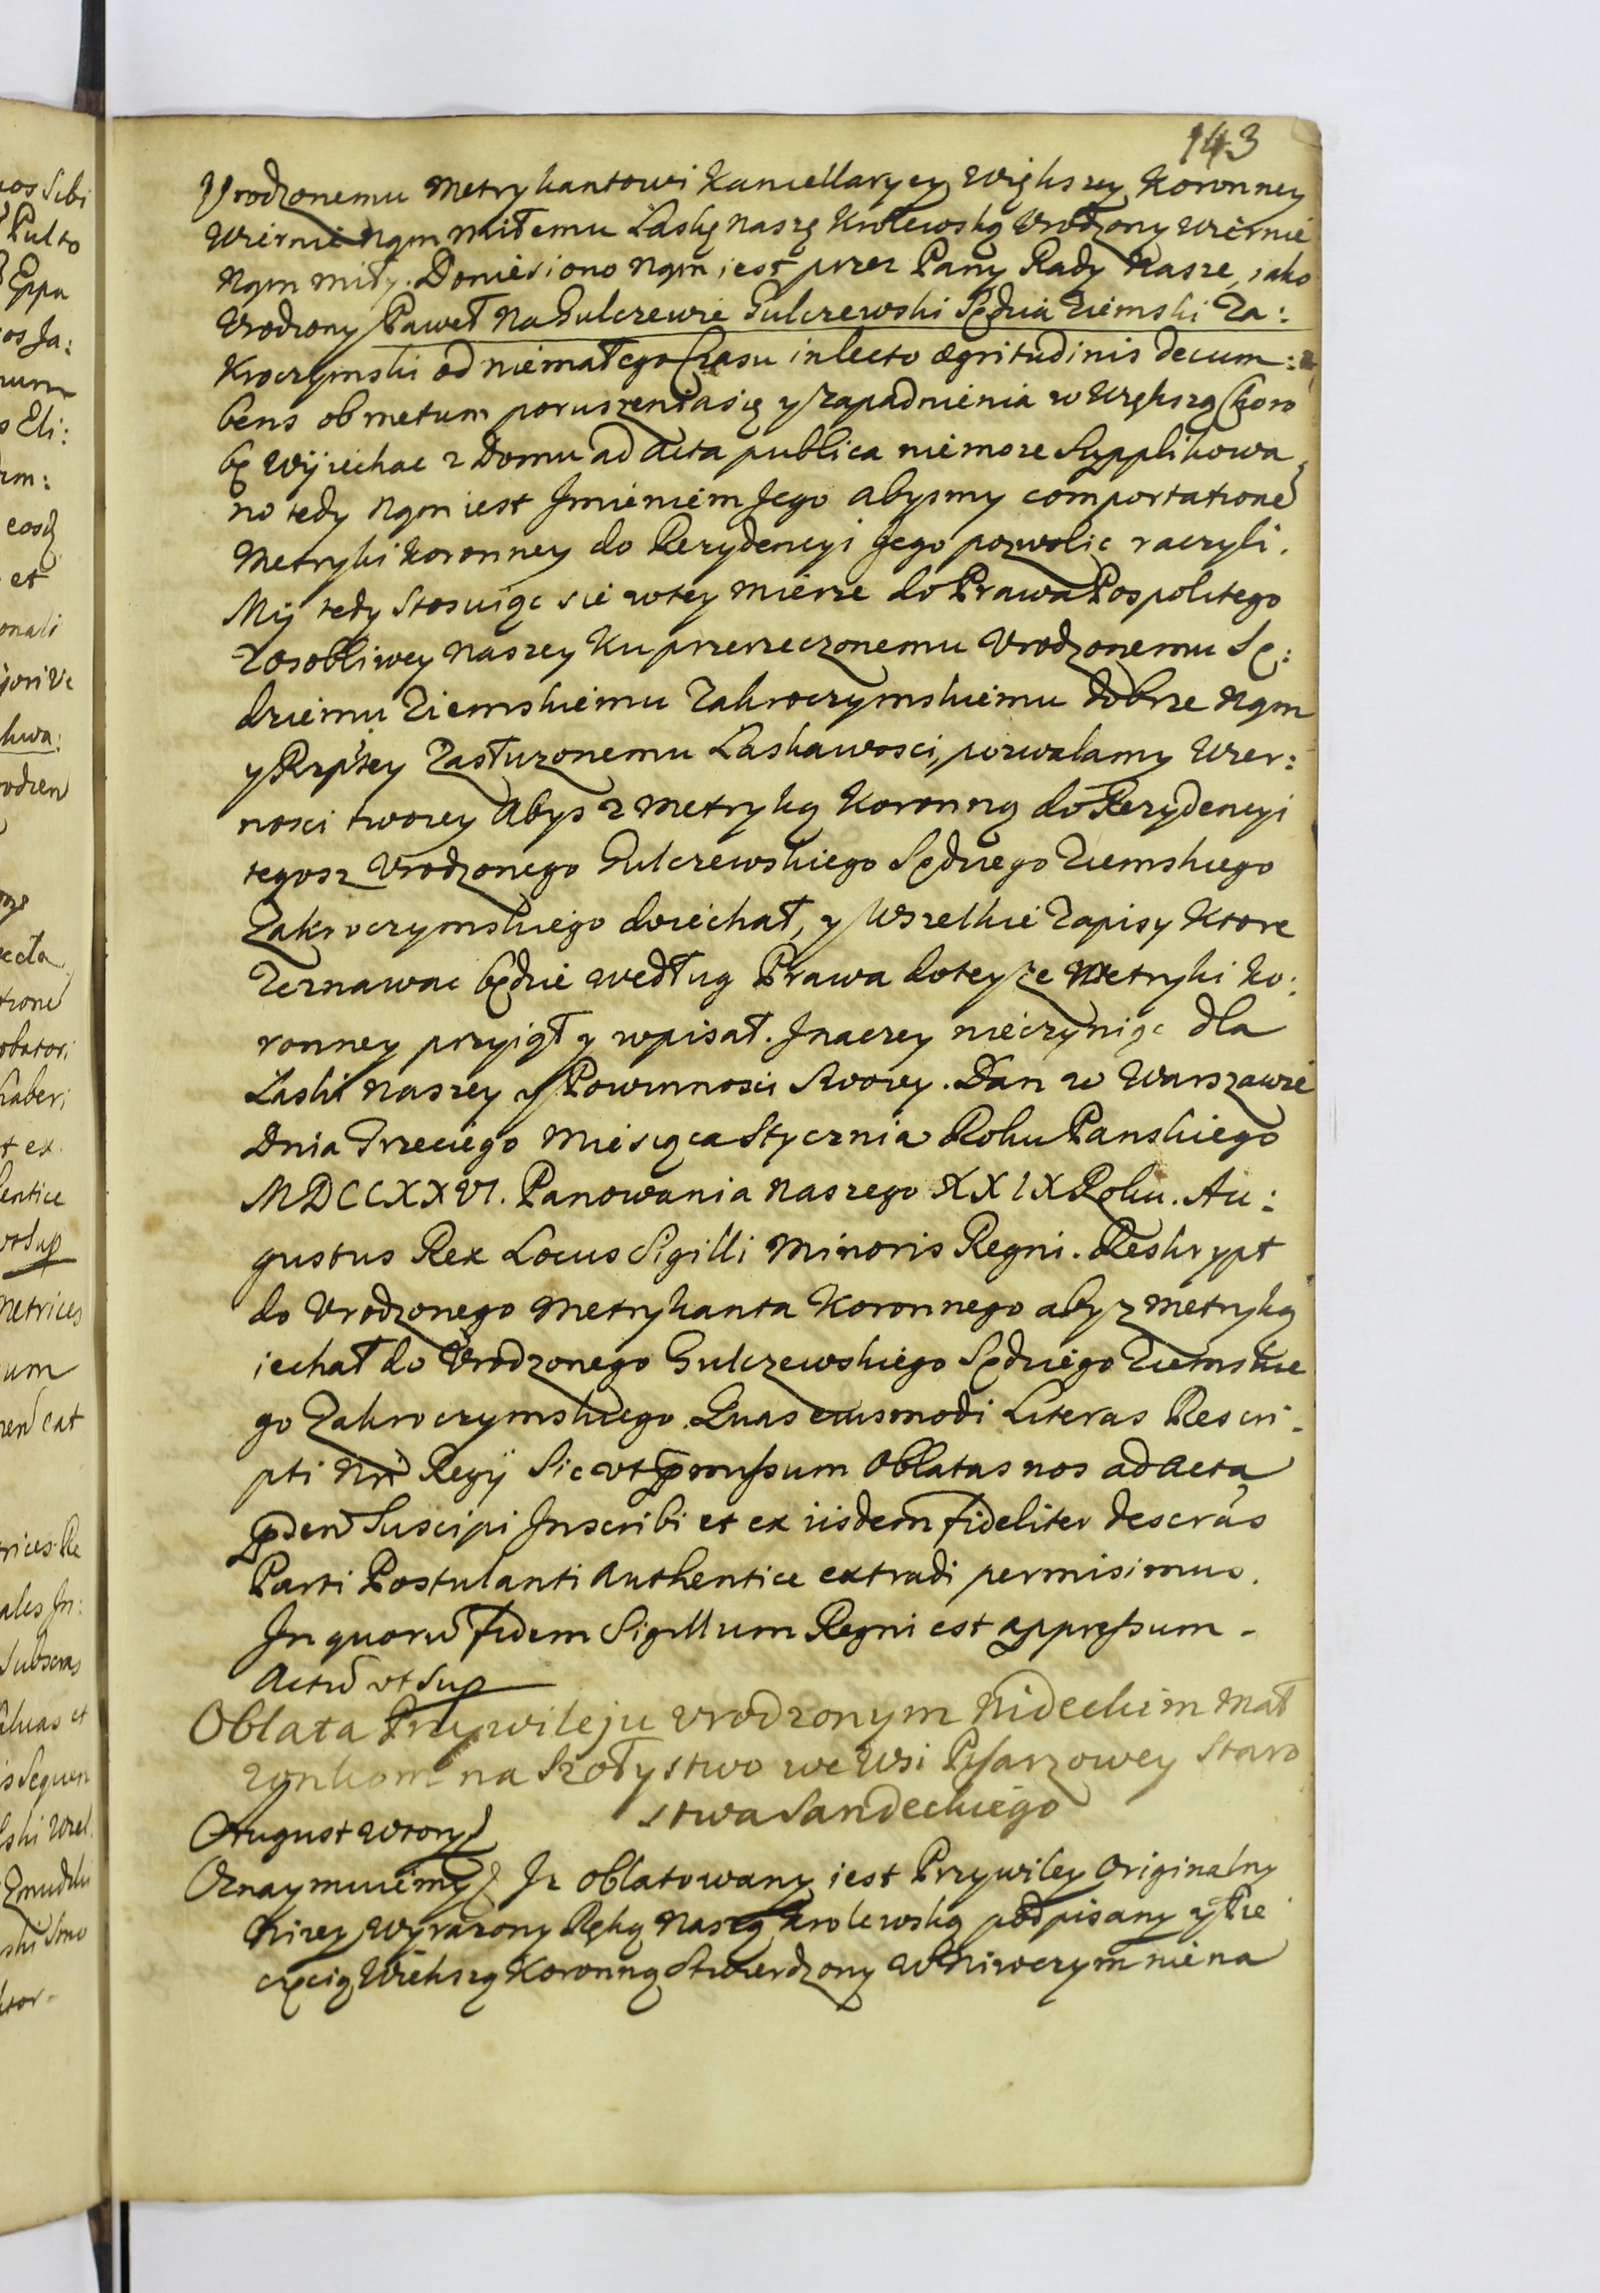 143
Vrodzonemu Metrykantowi Kancellaryey Większey Koronney
Wiernie Nam miłemu Łaskę naszę Krolewską Vrodzony Wiernie
Nam miły. Doniesiono Nam iest przez Pany Rady Nasze, iako
Vrodzony Paweł Na Gulczewie Gulczewski Sędzia Ziemski Za:
kroczymski od niemałego Czasu in lecto ægritudinis decum:
bens ob metum poruszenia się y zapadnienia w Większą Choro
bę Wyiechac z Domu ad Acta publica niemoze Supplikowa
no tedy Nam iest Jmieniem Jego abysmy comportationē
Metryki Koronney do Rezydencyi Jego pozwolic raczyli.
My tedy stosuiąc sie w tey mierze do Prawa Pospolitego
z osobliwey Naszey ku przerzeczonemu Vrodzonemu Sę:
dziemu Ziemskiemu Zakroczymskiemu dobrze Nam
y Rzptey Zasłuzonemu Łaskawosci, pozwalamy Wier:
nosci twoiey abys z Metryką Koronną do Rezydencyi
tegosz Vrodzonego Gulczewskiego Sędziego Ziemskiego
Zakroczymskiego dziechał, y Wszelkie Zapisy Ktore
Zeznawac będzie według Prawa do teyze Metryki Ko:
ronney przyiął y wpisał. Jnaczey nieczyniąc dla
Łaski Naszey y Powinnosci Swoiey. Dan w Warszawie
Dnia Trzeciego Miesiąca Stycznia Roku Panskiego
MDCCXXVI. Panowania Naszego XXIX Roku. Au:
gustus Rex Locus Sigilli Minoris Regni. Reskrypt
do Vrodzonego Metrykanta Koronnego aby z Metryką
iechał do Vrodzonego Gulczewskiego Sędziego Ziemskie
go Zakroczymskiego. Quas eiusmodi Literas Rescri-
pti Nri Regij Sic vt pmissum Oblatas nos ad Acta
pden Suscipi Jnscribi et ex iisdem fideliter descras
Parti Postulanti Authentice extradi permisimus.
Jn quorū fidem Sigillum Regni est appressum.
Actū vt Sup
Oblata Przywileju Vrodzonym Nideckim Mał
zonkom na Szołtystwo we Wsi Pisarzowey Staro
stwa Sandeckiego
August Wtory
Oznaymuiemy Jz oblatowany iest Przywiley Originalny
Nizey Wyrazony Ręką Naszą Krolewską podpisany y Pie
częcią Wiekszą Koronną Stwierdzony W Niwczym nie na